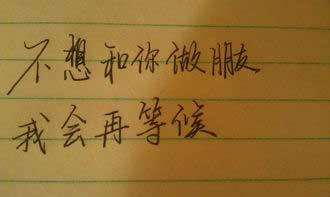 不想和你做朋友
我会再等候